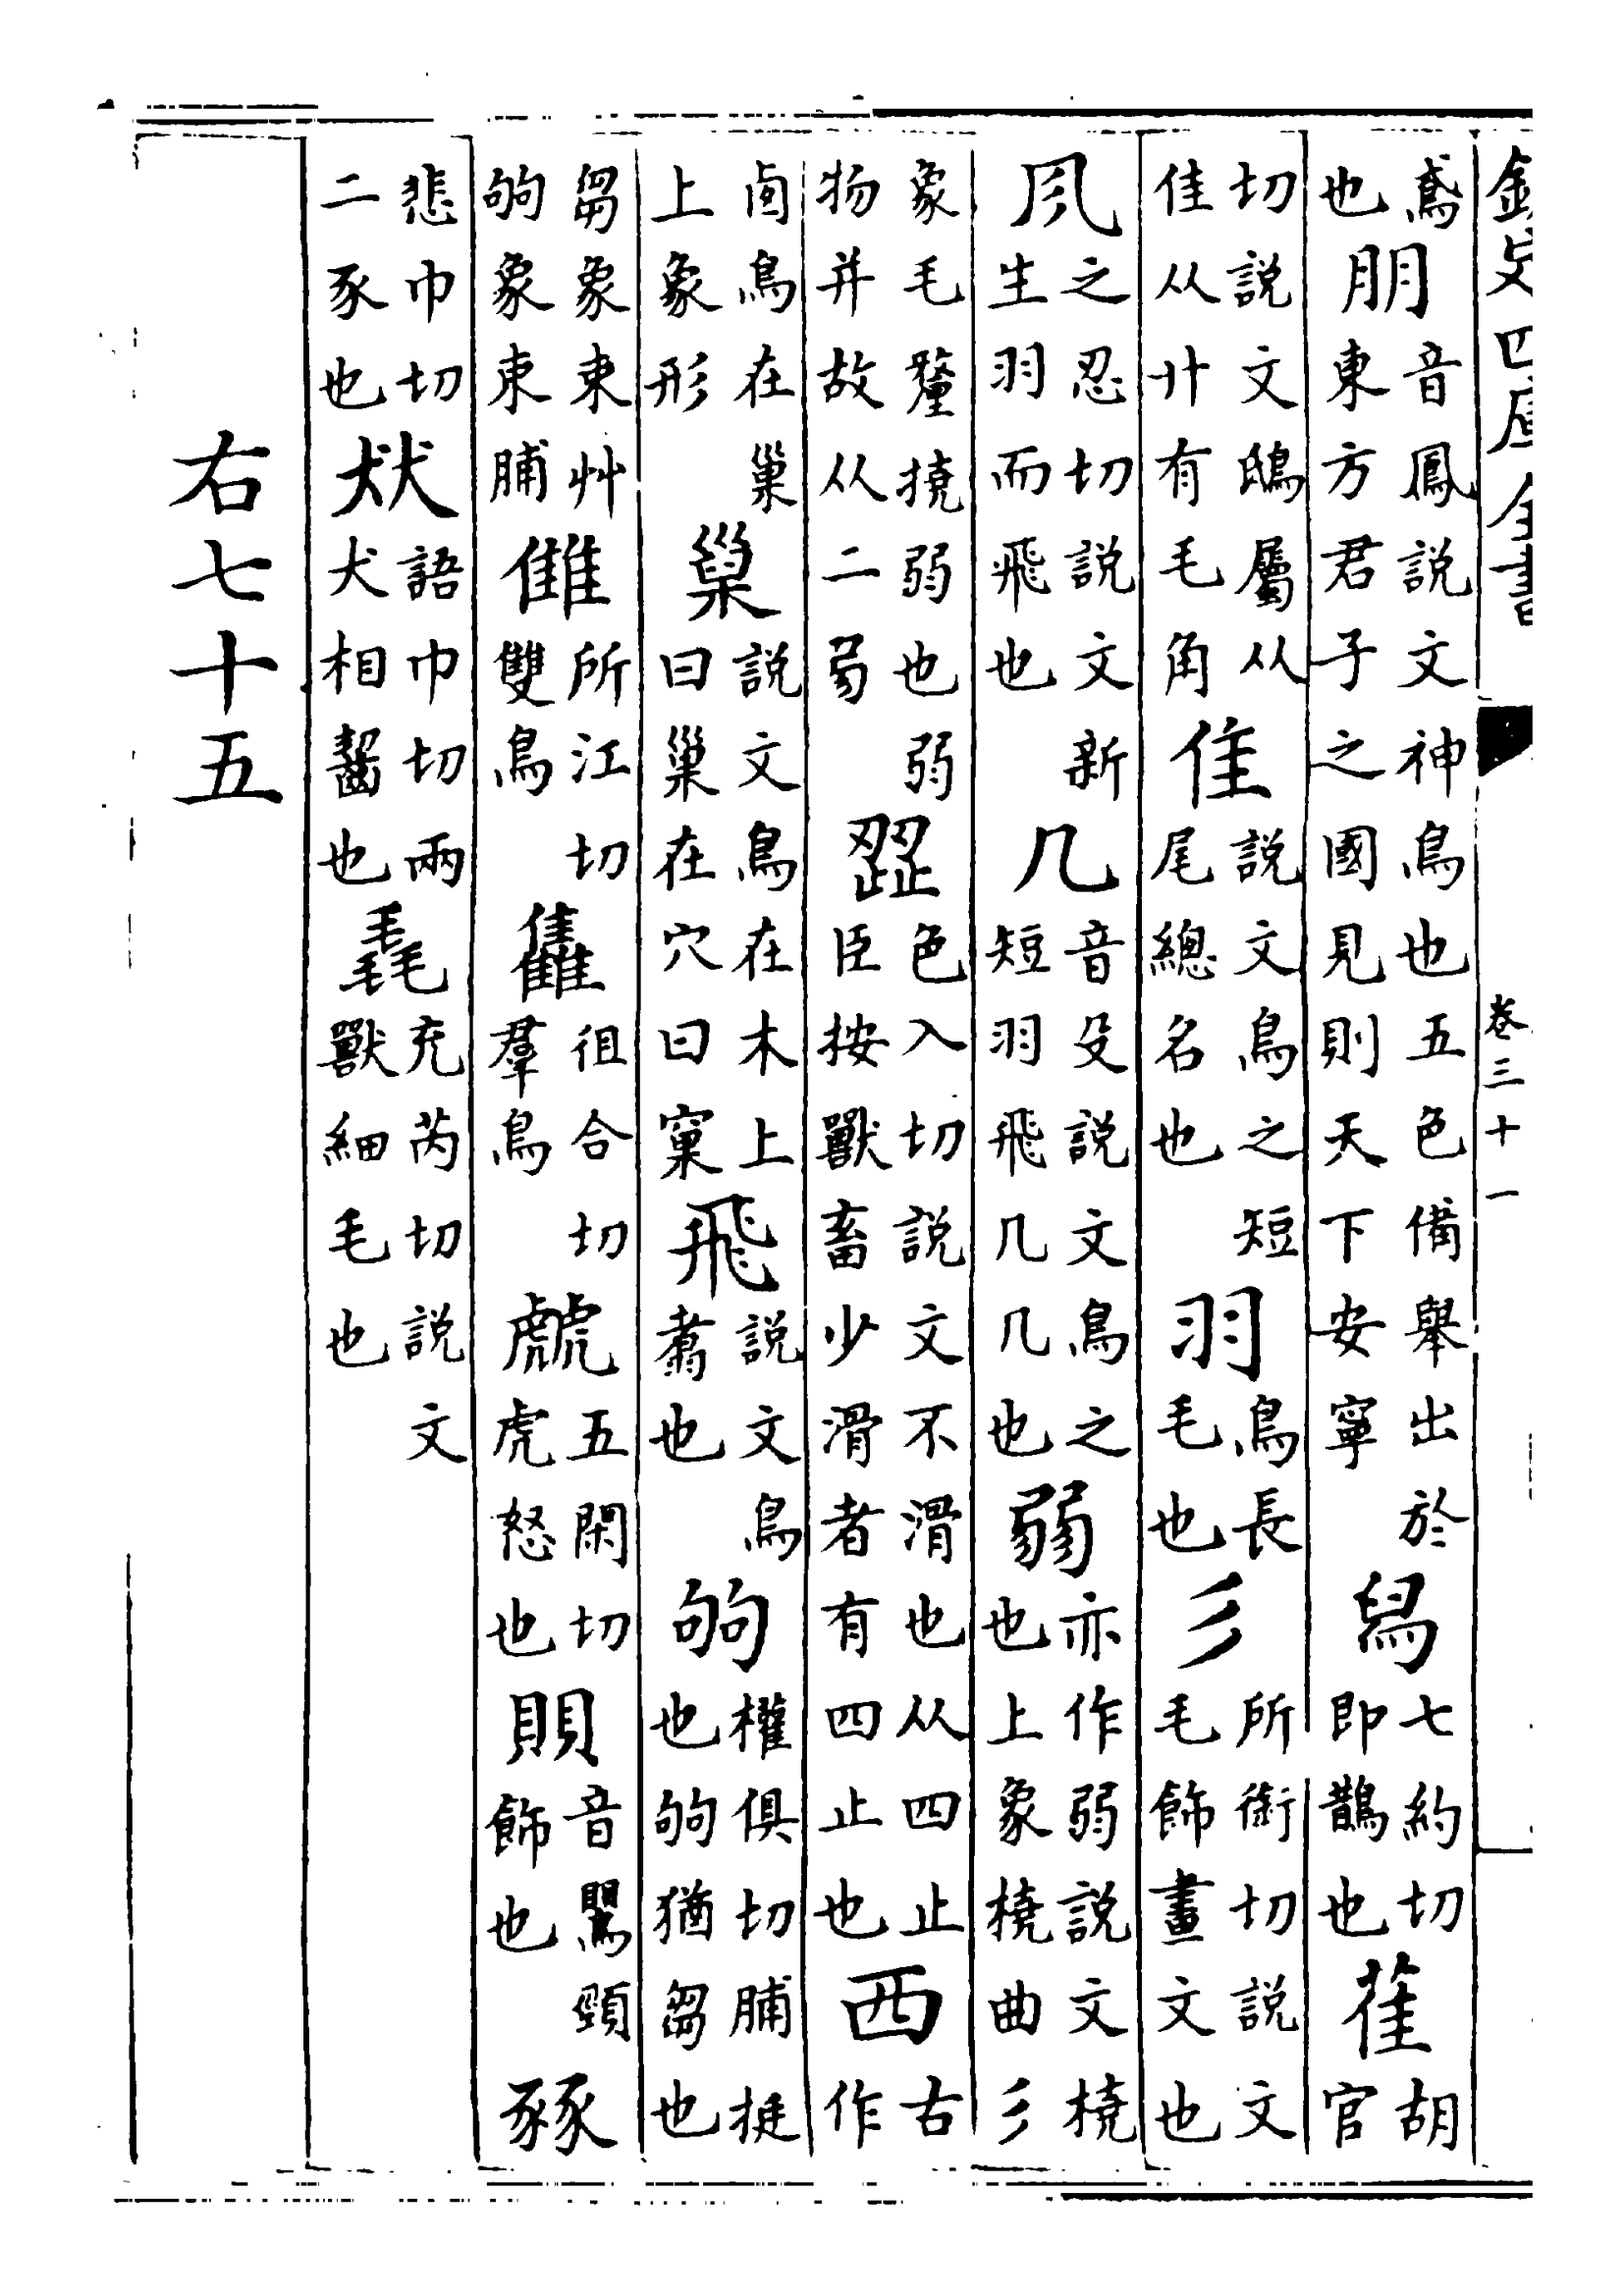 欽定四庫全書 卷三十一
鳶也朋音鳳說文神鳥也五色備舉出於東方君子之國見則天下安寧舄七約切即鵲也萑胡官
切說文鴟屬从隹从廾有毛角隹說文鳥之短尾總名也羽鳥長毛也彡所銜切說文毛飾畫文也
之忍切說文新生羽而飛也几音殳說文鳥之短羽飛几几也弱亦作弱說文橈也上象橈曲彡
象毛氂撓弱也弱物并故从二弱歰色入切說文不滑也从四止臣按獸畜少滑者有四止也西古作
卥鳥在巢上象形巢說文鳥在木上曰巢在穴曰窠飛說文鳥翥也權俱切脯挺也猶芻也
芻象束艸象束脯雔所江切雙鳥雥徂合切羣鳥虤五閑切虎怒也賏音罌頸飾也豩
悲巾切二豕也㹜語巾切兩犬相齧也毳充芮切說文獸細毛也
右七十五